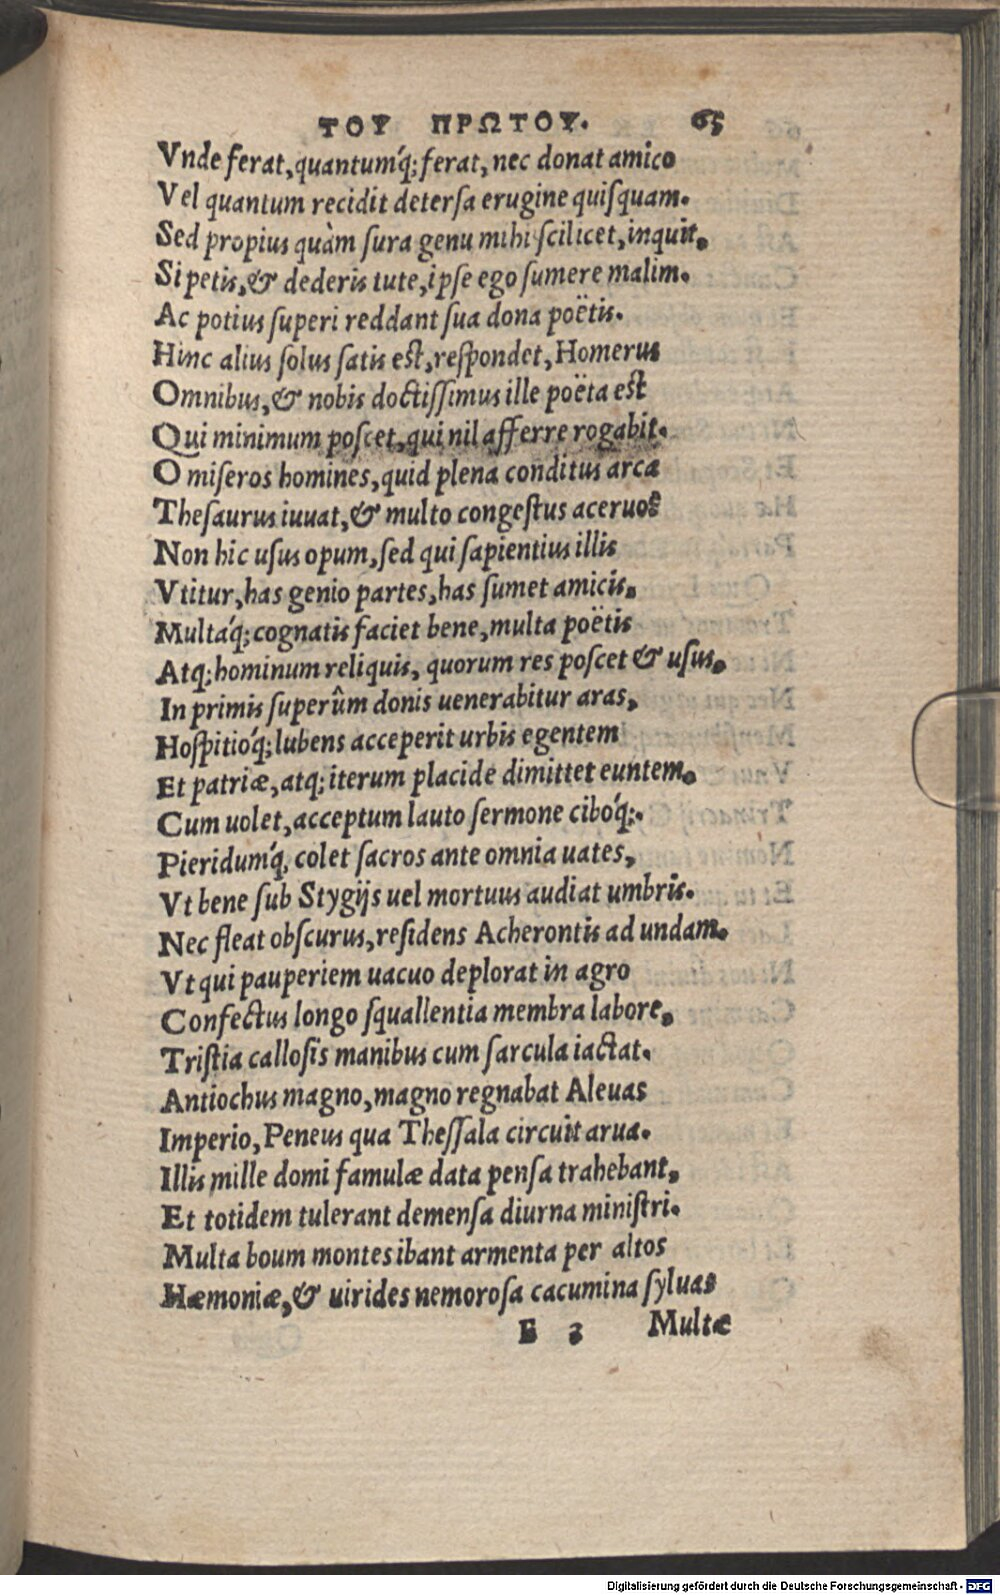 ΤΟΥ ΠΡΩΤΟΥ. 65
Vnde ferat, quantumq́; ferat, nec donat amico
Vel quantum recidit detersa erugine quisquam.
Sed propius quàm sura genu mihi scilicet, inquit,
Si petis, & dederis tute, ipse ego sumere malim.
Ac potius superi reddant sua dona poëtis.
Hinc alius solus satis est, respondet, Homerus
Omnibus, & nobis doctissimus ille poëta est
Qui minimum poscet, qui nil afferre rogabit.
O miseros homines, quid plena conditus arca
Thesaurus iuuat, & multo congestus aceruos
Non hic usus opum, sed qui sapientius illis
Vtitur, has genio partes, has sumet amicis,
Multaq́; cognatis faciet bene, multa poëtis
Atq; hominum reliquis, quorum res poscet & usus,
In primis superûm donis uenerabitur aras,
Hospitioq́; lubens acceperit urbis egentem
Et patriæ, atq; iterum placide dimittet euntem,
Cum uolet, acceptum lauto sermone ciboq́;.
Pieridumq́, colet sacros ante omnia uates,
Vt bene sub Stygijs uel mortuus audiat umbris.
Nec fleat obscurus, residens Acherontis ad undam,
Vt qui pauperiem uacuo deplorat in agro
Confectus longo squallentia membra labore,
Tristia callosis manibus cum sarcula iactat.
Antiochus magno, magno regnabat Aleuas
Imperio, Peneus qua Thessala circuit arua.
Illis mille domi famulæ data pensa trahebant,
Et totidem tulerant demensa diurna ministri.
Multa boum montes ibant armenta per altos
Hæmoniæ, & uirides nemorosa cacumina syluas
E 3 Multæ
Digitalisierung gefördert durch die Deutsche Forschungsgemeinschaft - DFG